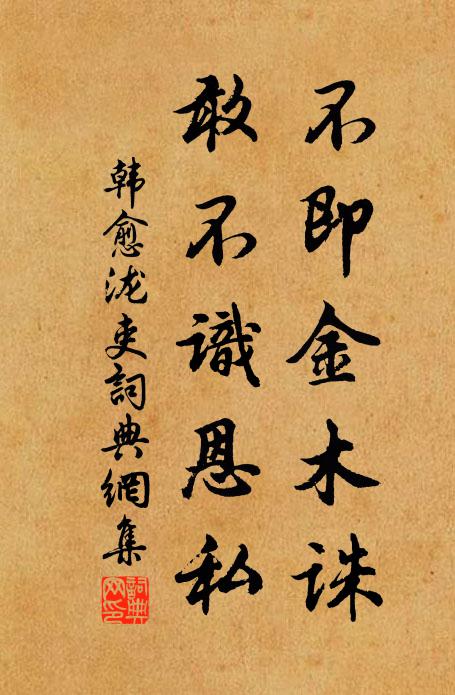 不即金木誅
敢不識恩私
韓愈泷吏詞典網集
詞典网印